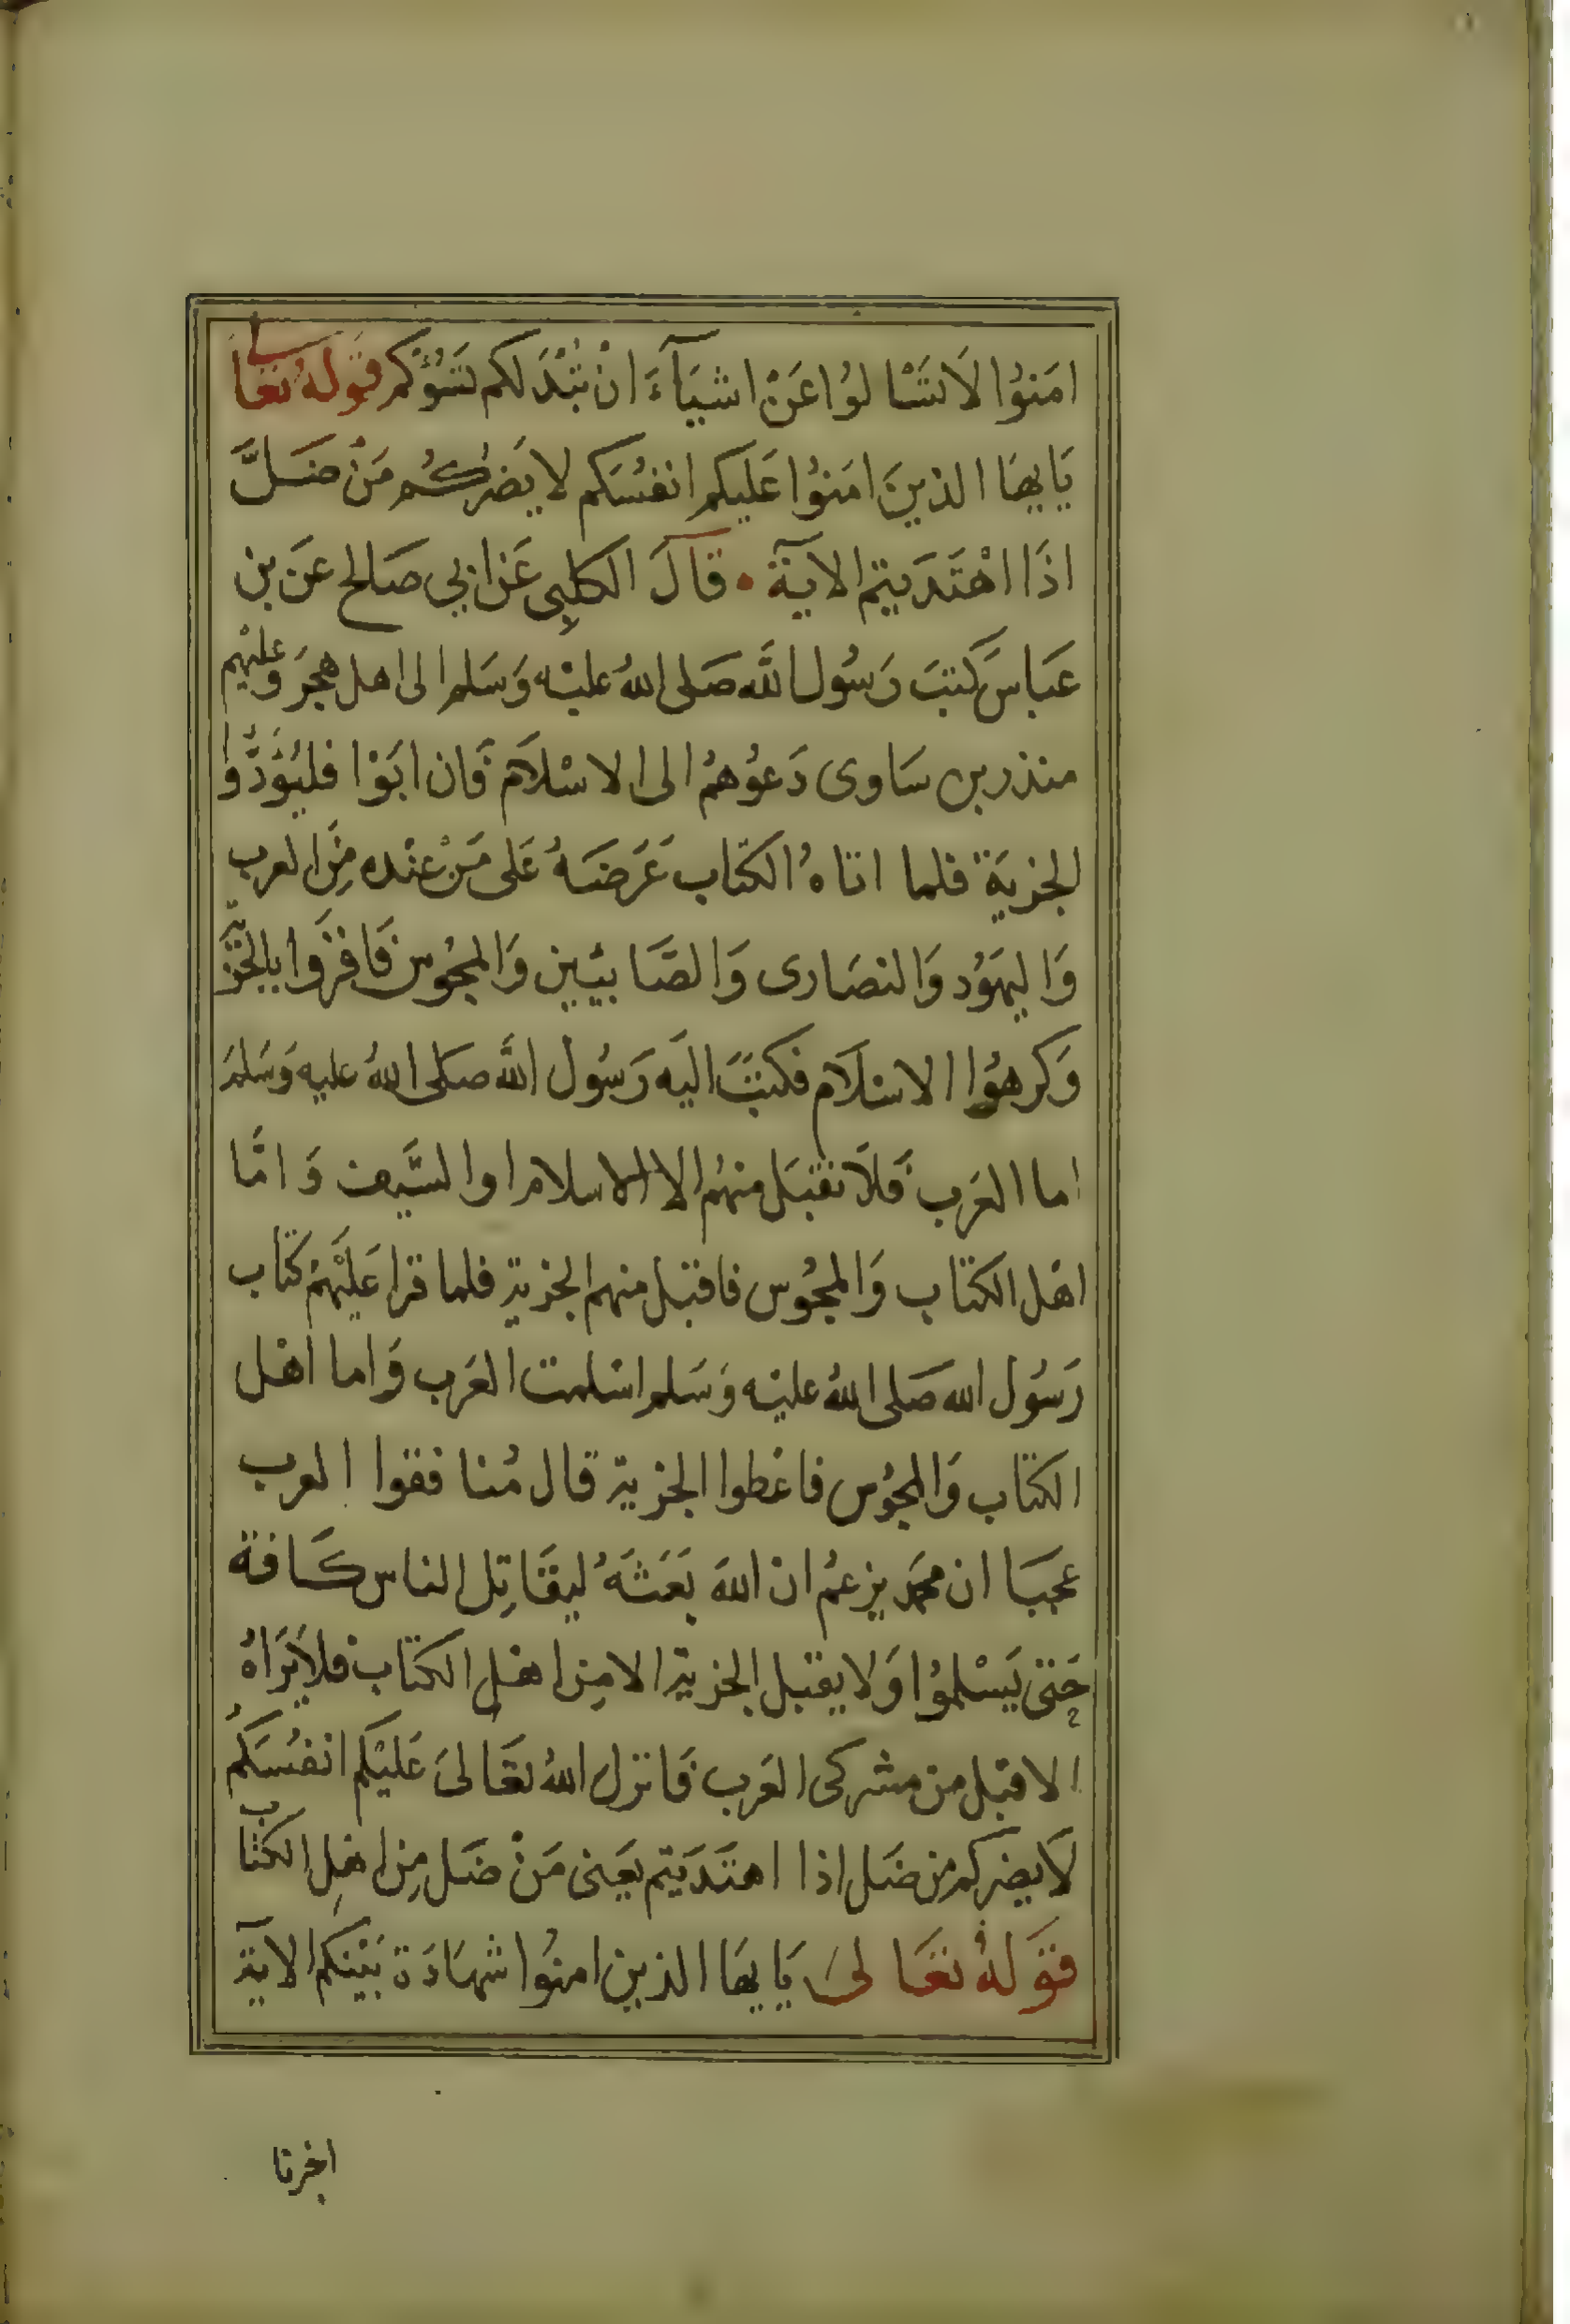 امَنوُا لَا تَسْالوُا عَنْ اشيَآءَ انْ تُبْدَ لكم تَسُؤْكم قَولهُ تعَالى
يَايهَا الذينَ امَنوُا عَليكم انفسُكم لا يَضركُم مَنْ ضَلَّ
اذَا اهْتَدَيتم الآية • قآلَ الكلبي عَن ابي صَالح عَن بن
عَباسَ كتبَ رَسُول اللَّه صَلى اللهُ عليْه وَسَلم الى اهل هجَرَ وَعليْهم
منذر بن سَاوى دَعُوهمُ الى الاسْلَام فَان ابَوْا فليُؤَدُّوا
الجزيَة فلما اتاهُ الكتاب عَرَضَهُ عَلى مَنْ عنْده مِنَ العرب
وَاليهَوُد وَالنصَارى وَالصَّابئِين وَالمجُوس فَاقرَّوا بالجزية
وَكرهوُا الاسْلَام فكتبَ اليَه رَسُول اللَّه صَلى اللهُ عليه وَسَلمَ
اما العَرب فَلَا تقبَل منهُم الا الاسلام او السَّيف وَامَّا
اهْل الكتاب وَالمجُوس فاقبَل منهم الجزية فلما قرا عَليَهْمْ كتاب
رَسُول الله صَلى اللهُ عليْه وَسَلم اسْلمت العَرب وَاما اهْل
الكتاب وَالمجُوس فاعْطوا الجزية قال مُنافقوا العرب
عجبَا ان محمَد يزعمُ ان اللهَ بَعَثَهُ ليقَاتِل الناس كَافة
حَتى يَسْلموُا وَلا يقبَل الجزية الا مِن اهْل الكتاب فلَا يَرَاهُ
الا قبل من مشركى العَرب فَانزل اللهُ تعَالىَ عَليْكم انفسُكمُ
لَا يضركم من ضَل اذا اهتَدَيتم يعَنى مَنْ ضَل مِن اهْلِ الكتاب
قَولهُ تعَالىَ يَايهَا الذين امنوُا شهَادَة بَيْنكم الآية
اخبرنا